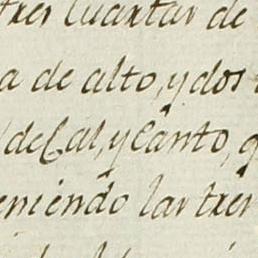 tres Cuartas de
a de alto, y dos
de Cal, y Canto, q
eniendo las tres